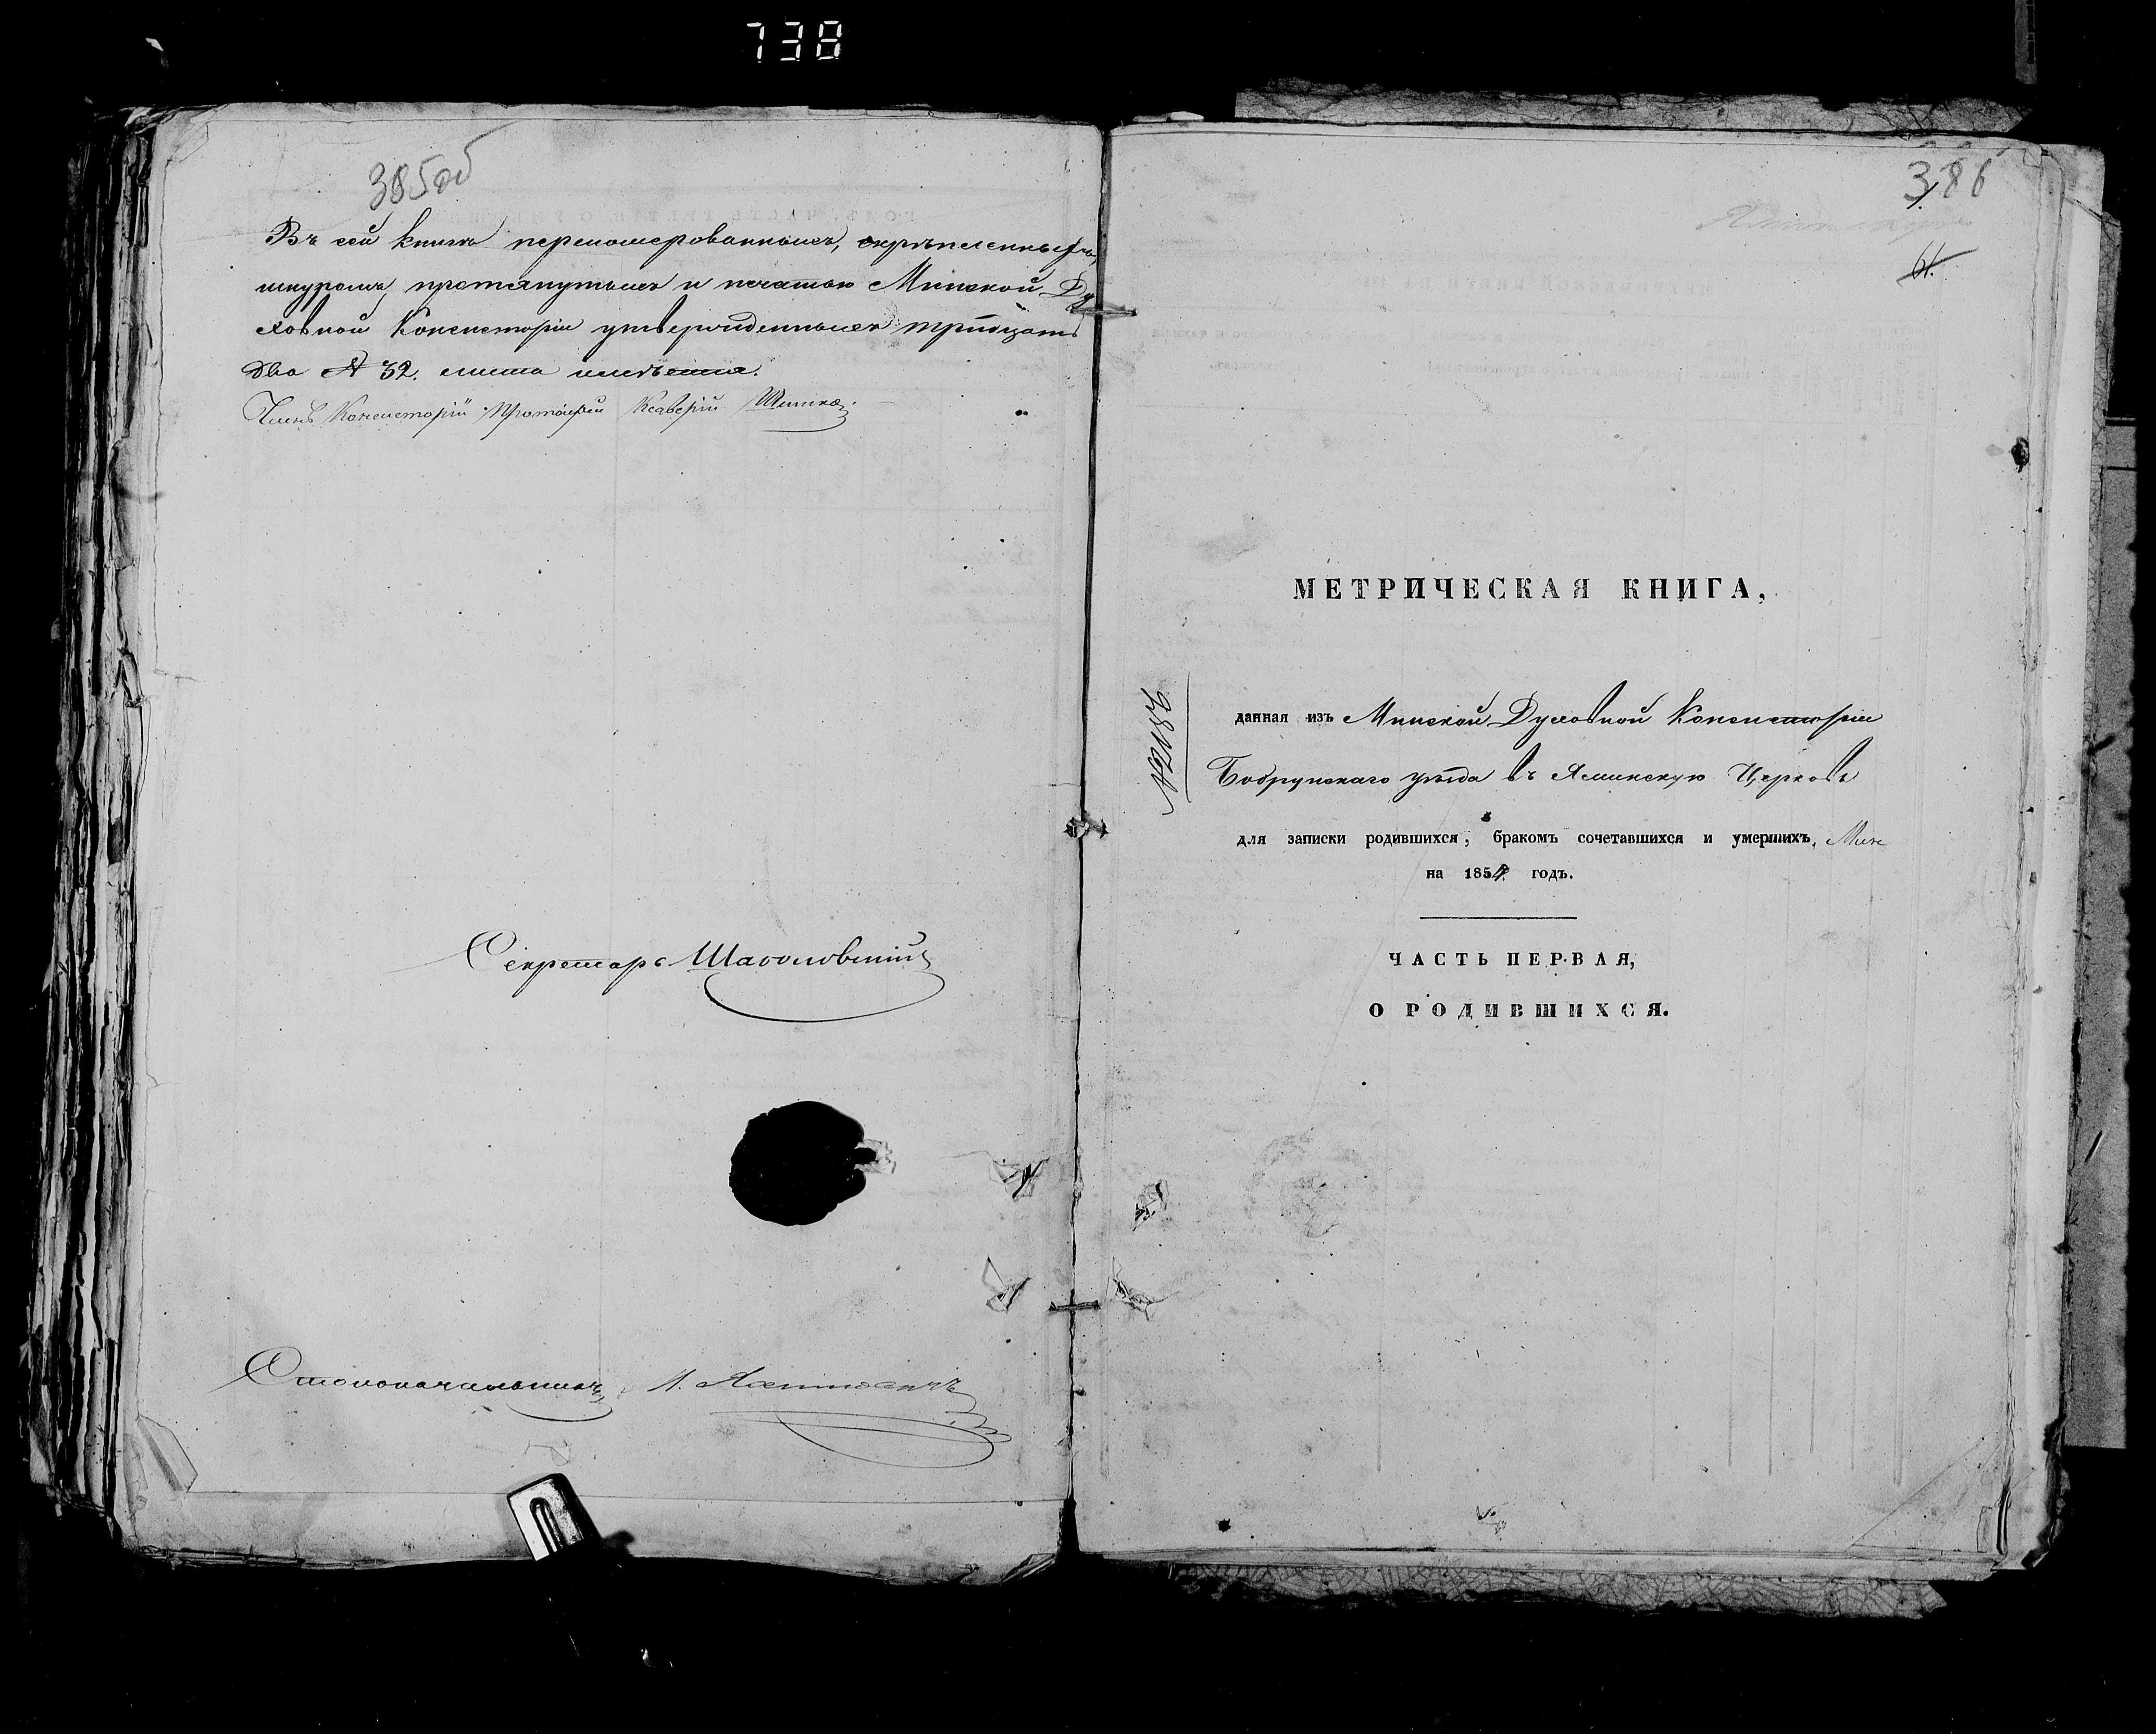 738
385об
Въ сей книгѣ перешомерованныхъ, скрѣпленныхъ,
шнуромъ протянутыхъ и печатью Минской Ду
ховной Консисторіи утвержденныхъ тридцать
два № 32. листа имѣется.
Членъ Консисторіи Протоіерей Ксаверій
Секретарь
Столоначальникъ
386
61.
МЕТРИЧЕСКАЯ КНИГА,
данная изъ Минской Духовной Консисторіи
Бобруйскаго уѣзда въ Яминскую Церковь
для записки родившихся, бракомъ сочетавшихся и умершихъ,
на 1854. годъ.
ЧАСТЬ ПЕРВАЯ,
О РОДИВШИХСЯ.